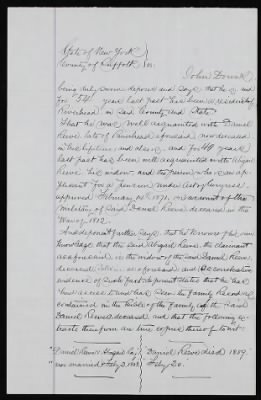 State of New York
County of Suffolk } ss:
John
being duly sworn deposes and says that he is and
for 54 years last past has been a resident of
Riverhead in said County and State
That he was well acquainted with Daniel
Reeve late of Riverhead aforesaid now deceased
in his lifetime and also is and for 49 years
last past has been well acquainted with Abigail
Reeve his widow and the person who is an ap-
plicant for a pension under act of Congress
approved February 14th 1871, on account of the
military of said Daniel Reeve deceased in the
War of 1812.
And deponent further says that he knows of his own
knowledge that the said Abigail Reeve the claimant
as aforesaid is the widow of the said Daniel Reeve
deceased as aforesaid and
evidence of such fact deponent states that he has
had access to and has seen the Family Record as
contained in the Bible of the Family of the said
Daniel Reeve deceased and that the following ex-
tracts therefrom are true copies thereof to wit
"Daniel Reeve & Abigail
was married Feby 3, Daniel Reeve died 1859.
Feby 20.